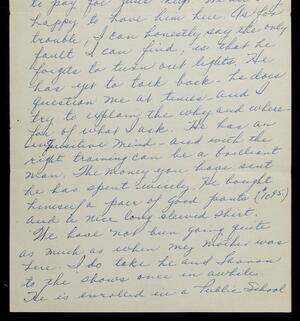 to pay for
happy to have him here. As for
trouble, I can honestly say the only
fault I can find, is that he
forgets to turn out lights. He
has yet to talk back - he does
question me at times - and I
try to explain the why and where-
for of what I ask. He has an
inquisitive mind - and with the
right training can be a brilliant
man. The money you have sent
he has spent wisely. He bought
himself a pair of good pants (7.95)
and a nice long sleeved shirt.
We have not bun going quite
as much as when my mother was
here. I do take he and Shanon
to the shows once in awhile.
He is enrolled in a Public School